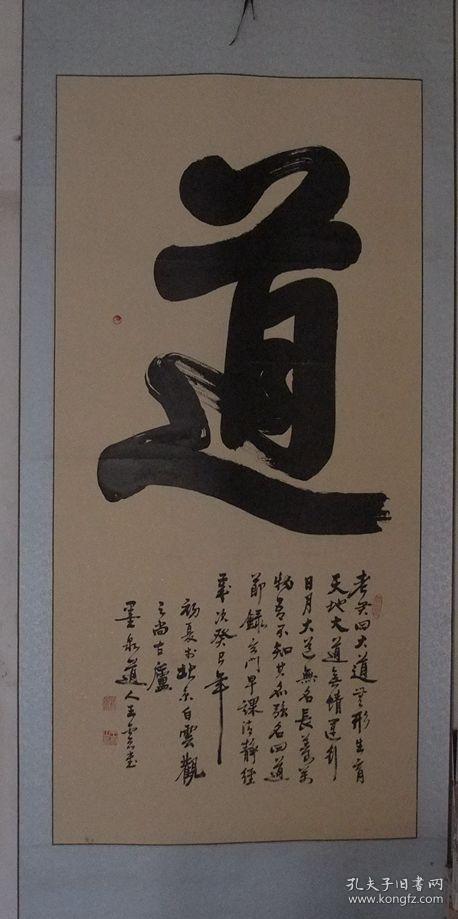 道
老君曰大道無形生育
天地大道無情運行
日月大道無名長養萬
物吾不知其名強名曰道
節錄玄門早課清靜經
歲次癸巳年
初夏於北京白雲觀
之尚古廬
墨泉道人王書
孔夫子旧书网
www.kongfz.com